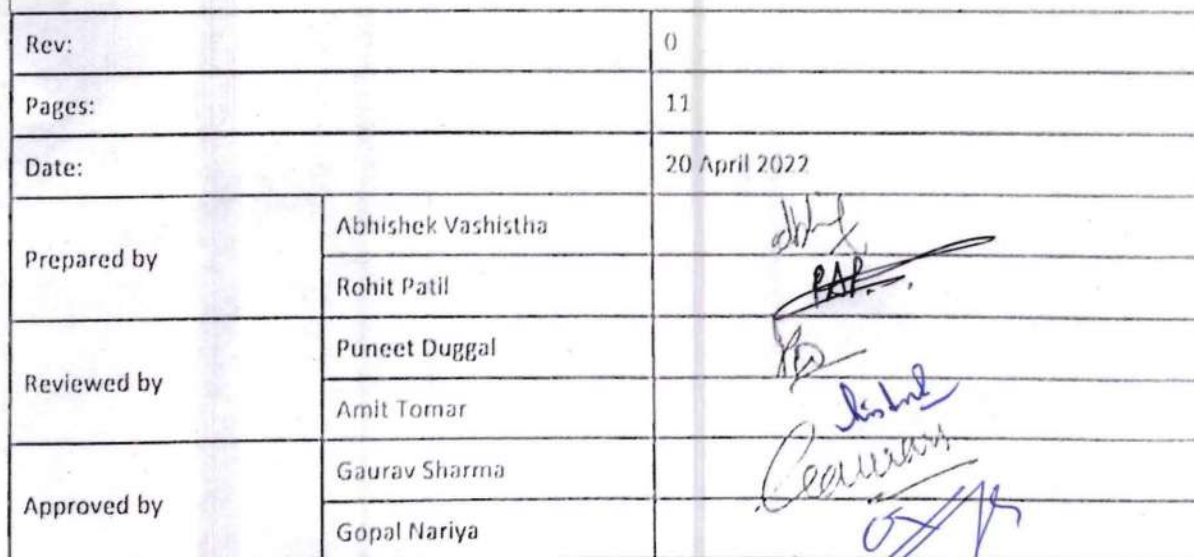 Rev: 0
Pages: 11
Date: 20 April 2022
Prepared by
Abhishek Vashistha
Rohit Patil
PAP..
Reviewed by
Puneet Duggal
Amit Tomar
Approved by
Gaurav Sharma
Gopal Nariya